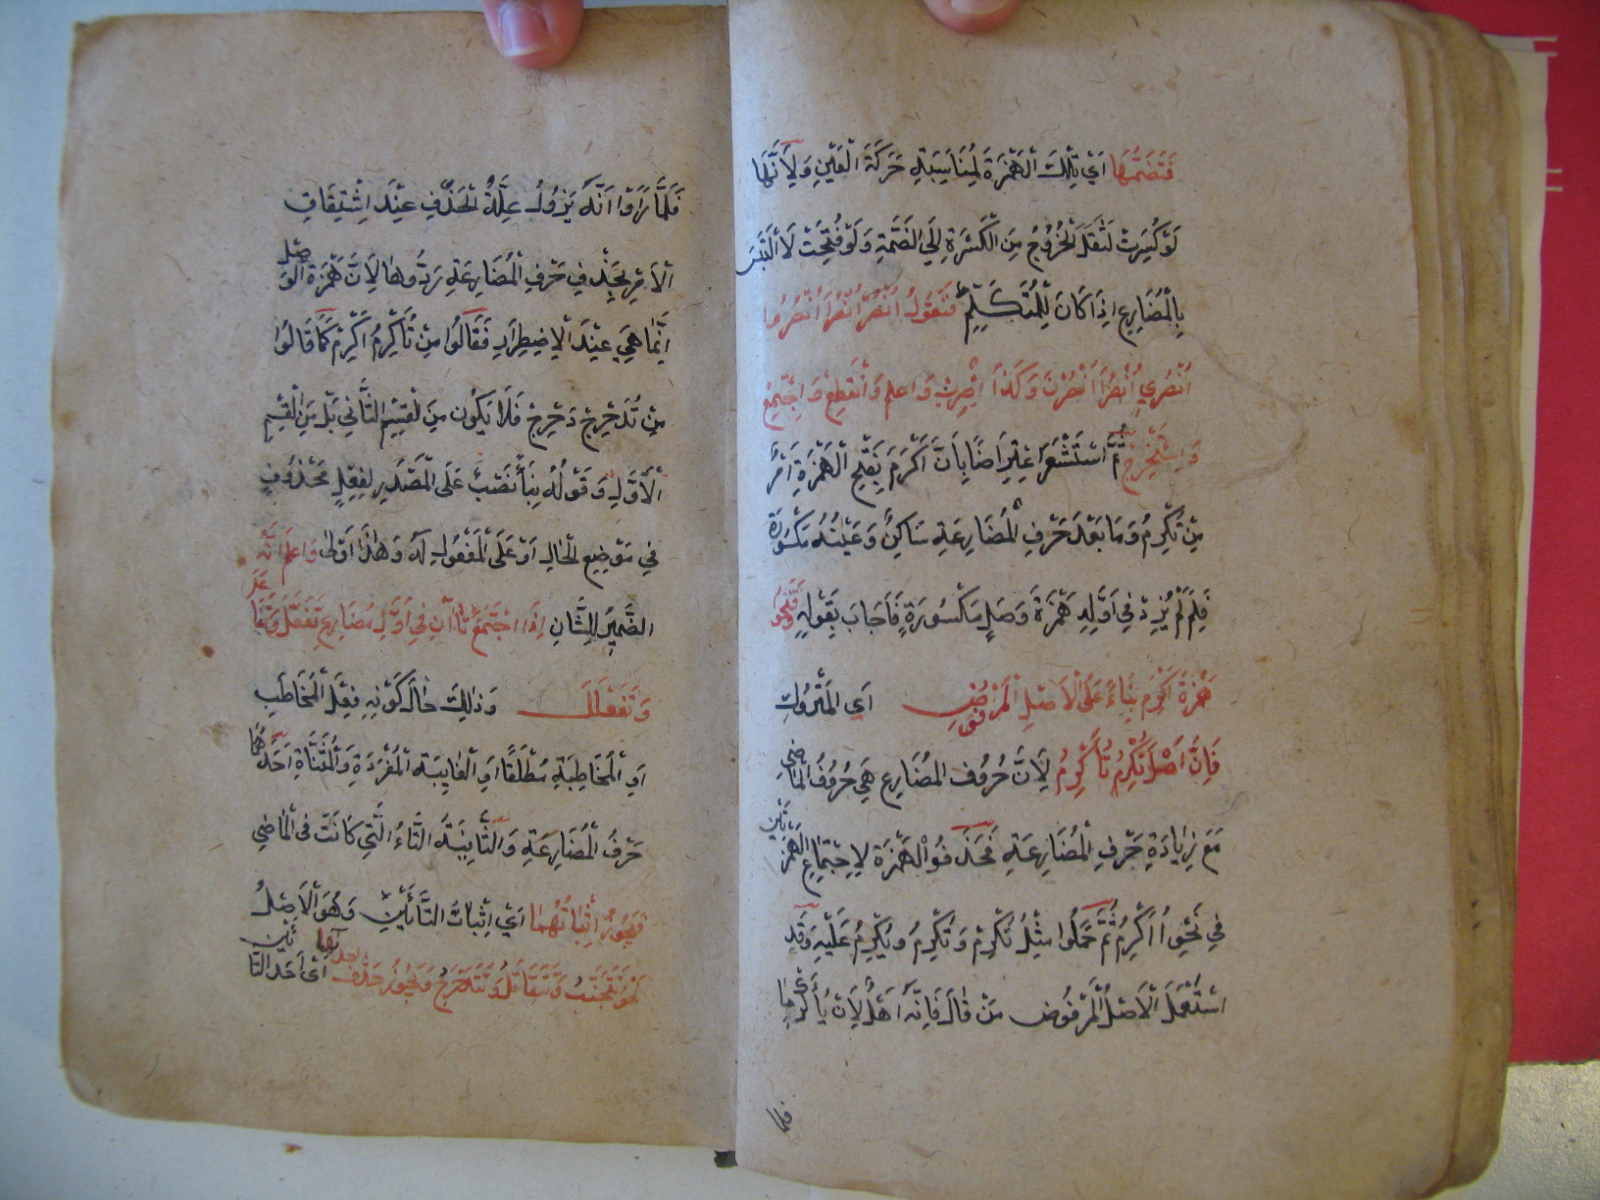 فَتَضُمُّهَا اَيْ تِلْكَ الْهَمْزَةَ لِمُنَاسَبَةِ حَرَكَةَ الْعَيْنِ وَلِاَنَّهَا
لَوْ كُسِرَتْ لَثَقُلَ الْخُرُوجُ مِنَ الْكَسْرَةِ اِلَي الضَّمَّةِ وَلَوْ فُتِحَتْ لَالْتَبَسَ
بِالْمُضَارِعِ اِذَا كَانَ لِلْمُتَكَلِّمِ فَتَقُولُ اُنْصُرْ اُنْصُرَا اُنْصُرُوا
اُنْصُرِي اُنْصُرَا اُنْصُرْنَ وَكَذَا اِضْرِبْ وَاعْلَمْ وَانْقَطِعْ وَاجْتَمِعْ
وَاسْتَخْرِجْ ثُمَّ اسْتَشْعَرَ اعْتِرَاضًا بِاَنَّ اَكْرِمْ بِفَتْحِ الْهَمْزَةِ اَمْرٌ
مِنْ تُكْرِمُ وَمَا بَعْدَ حَرْفِ الْمُضَارَعَةِ سَاكِنٌ وَعَيْنُهُ مَكْسُورَة
فَلِمَ لَمْ يُزِدْ فِي اَوَّلِهِ هَمْزَةَ وَصْلٍ مَكْسُورَةٍ فَاَجَابَ بِقَوْلِهِ وَفَتَحُوا
هَمْزَةَ اَكْرِمْ بِنَاءً عَلَى الْاَصْلِ الْمَرْفُوضِ اَيِ الْمَتْرُوكِ
فَاِنَّ اَصْلَ تُكْرِمُ تُأَكْرِمُ لِاَنَّ حُرُوفَ الْمُضَارِعِ هِيَ حُرُوفُ الْمَاضِي
مَعَ زِيَادَةِ حَرْفِ الْمُضَارَعَةِ فَحَذَفُوا الْهَمْزَةَ لِاجْتِمَاعِ الْهَمْزَتَيْنِ
فِي نَحْوِ اُاَكْرِمُ ثُمَّ حَمَلُوا مِثْلُ نُكْرِمُ وَتُكْرِمُ وَيُكْرِمُ عَلَيْهِ وَقَدِ
اسْتَعْمَلَ الْاَصْلَ الْمَرْفُوضَ مَنْ قَالَ فَاِنَّهُ اَهْلٌ لِاَنْ يُأَكْرَمَا
فلما
فَلَمَّا رَاَوْا اَنَّهُ يَزُولُ عِلَّةُ الْحَذْفِ عِنْدَ اشْتِقَاقِ
الْاَمْرِ بِحَذْفِ حَرْفِ الْمُضَارَعَةِ رَدُّوهَا لِاَنَّ هَمْزَةَ الْوَصْلِ
اِنَّمَا هِيَ عِنْدَ الْاِضْطِرَارِ فَقَالُوا مِنْ تُأَكْرِمُ اَكْرِمْ كَمَا قَالُوا
مِنْ تُدَحْرِجُ دَحْرِجْ فَلَا يَكُونُ مِنَ الْقِسْمِ الثَّانِي بَلْ مِنَ الْقِسْمِ
الْاَوَّلِ وَقَوْلُهُ بِنَاءً نُصِبَ عَلَى الْمَصْدَرِ لِفِعْلٍ مَحْذُوفٍ
فِي مَوْضِعِ الْحَالِ اَوْ عَلَى الْمَفْعُولِ لَهُ وَهٰذَا اَوْلٰى وَاعْلَمْ اَنَّهُ
الضَّمِيرُ لِلشَّانِ اِذَا اجْتَمَعَ تَاآنِ فِي اَوَّلِ مُضَارِعِ تَفَعَّلَ وَتَفَاعَلَ
وَتَفَعْلَلَ وَذٰلِكَ حَالَ كَوْنِهِ فِعْلَ الْمُخَاطَبِ
اَوِ الْمُخَاطَبَةِ مُطْلَقًا اَوِ الْغَايِبَةِ الْمُفْرَدَةِ وَالْمُثَنَّاةِ اَحَدُهُمَا
حَرْفُ الْمُضَارَعَةِ وَالثَّانِيَةُ التَّاءُ الَّتِي كَانَتْ فِي الْمَاضِي
فَيَجُوزُ اِثْبَاتُهُمَا اَيْ اِثْبَاتُ التَّائَيْنِ وَهُوَ الْاَصْلُ
نَحْوُ تَتَجَنَّبُ وَتَتَقَاتَلُ وَتَتَدَحْرَجُ وَيَجُوزُ حَذْفُ احديهما اَيْ اَحَدِ التَّائَيْنِ